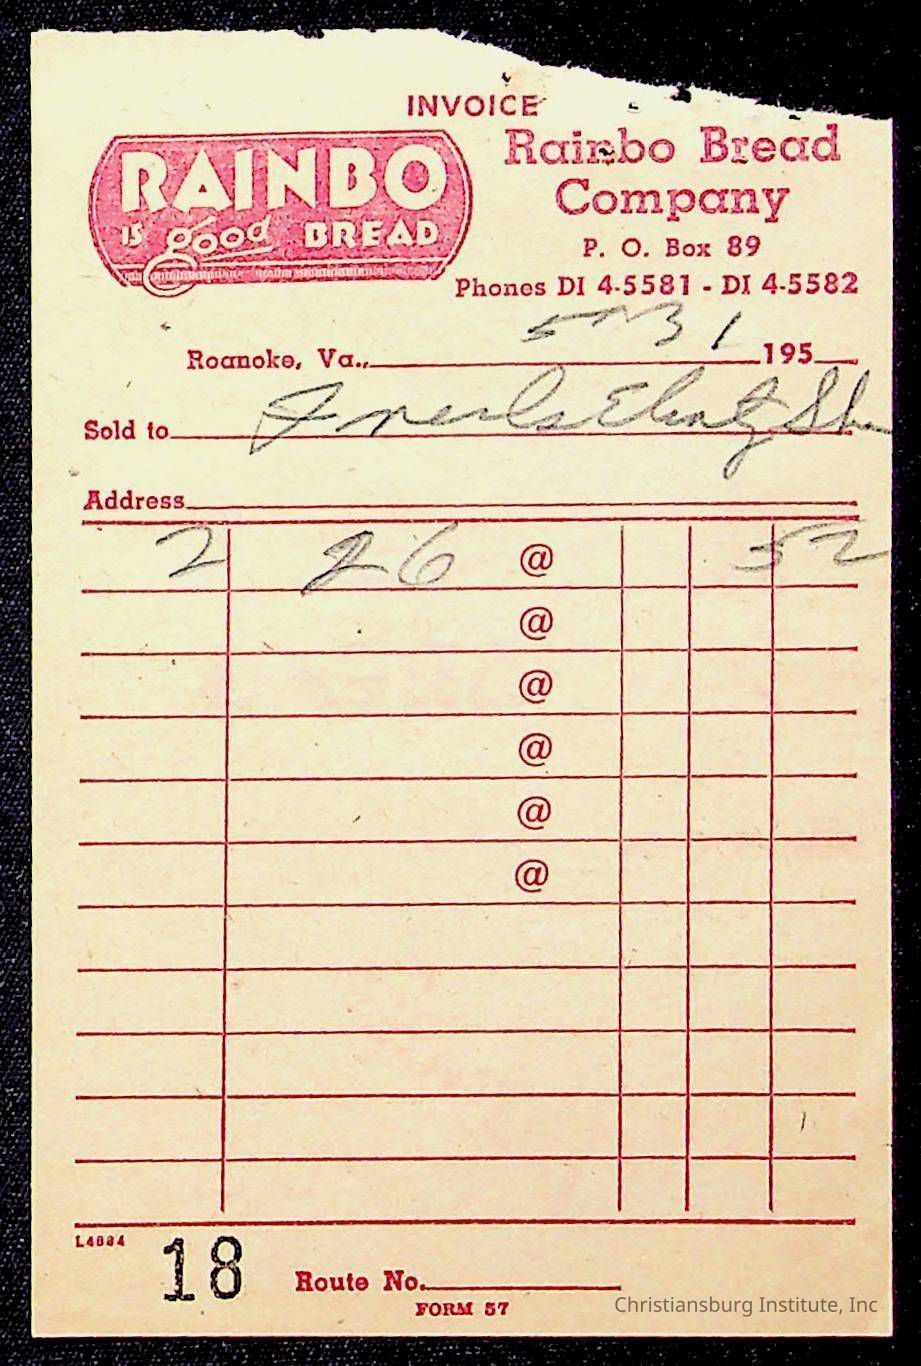 INVOICE
RAINBO
IS good BREAD
Rainbo Bread
Company
P. O. Box 89
Phones DI 4-5581 - DI 4-5582
5-31
Roanoke, Va., 195
Sold to
Address
2 26 @ 52
@
@
@
@
@
L4884
18 Route No.
FORM 57
Christiansburg Institute, Inc